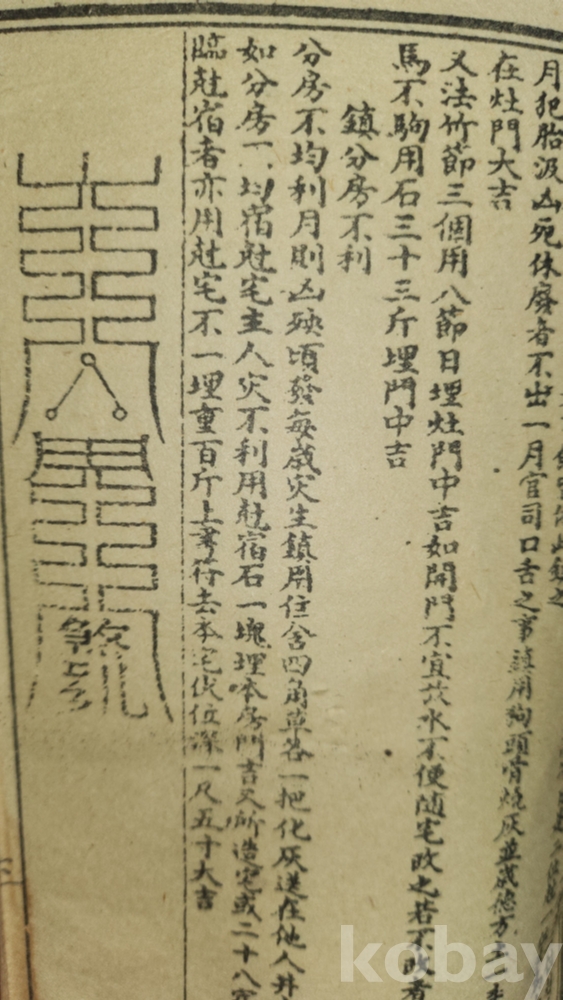 月犯胎
凶
休廢者不出一月官司口舌之事鎮用狗頭骨燒灰並歲德方
在灶門大吉
又法竹節三個用八節日埋灶門中吉如開門不宜放水不便隨宅改之若不改者
馬不駒用石三十三斤埋門中吉
鎮分房不利
分房不均利月則凶殃頃發每歲災生鎮用住舍四角草各一把化灰送在他人井
如分房不均宿尅宅主人災不利用尅宿石一塊埋本房門吉又所造宅或二十八宿
臨尅宿者亦用尅宅不一埋重百斤上書符去本宅伏位深一尺五寸大吉
kobay